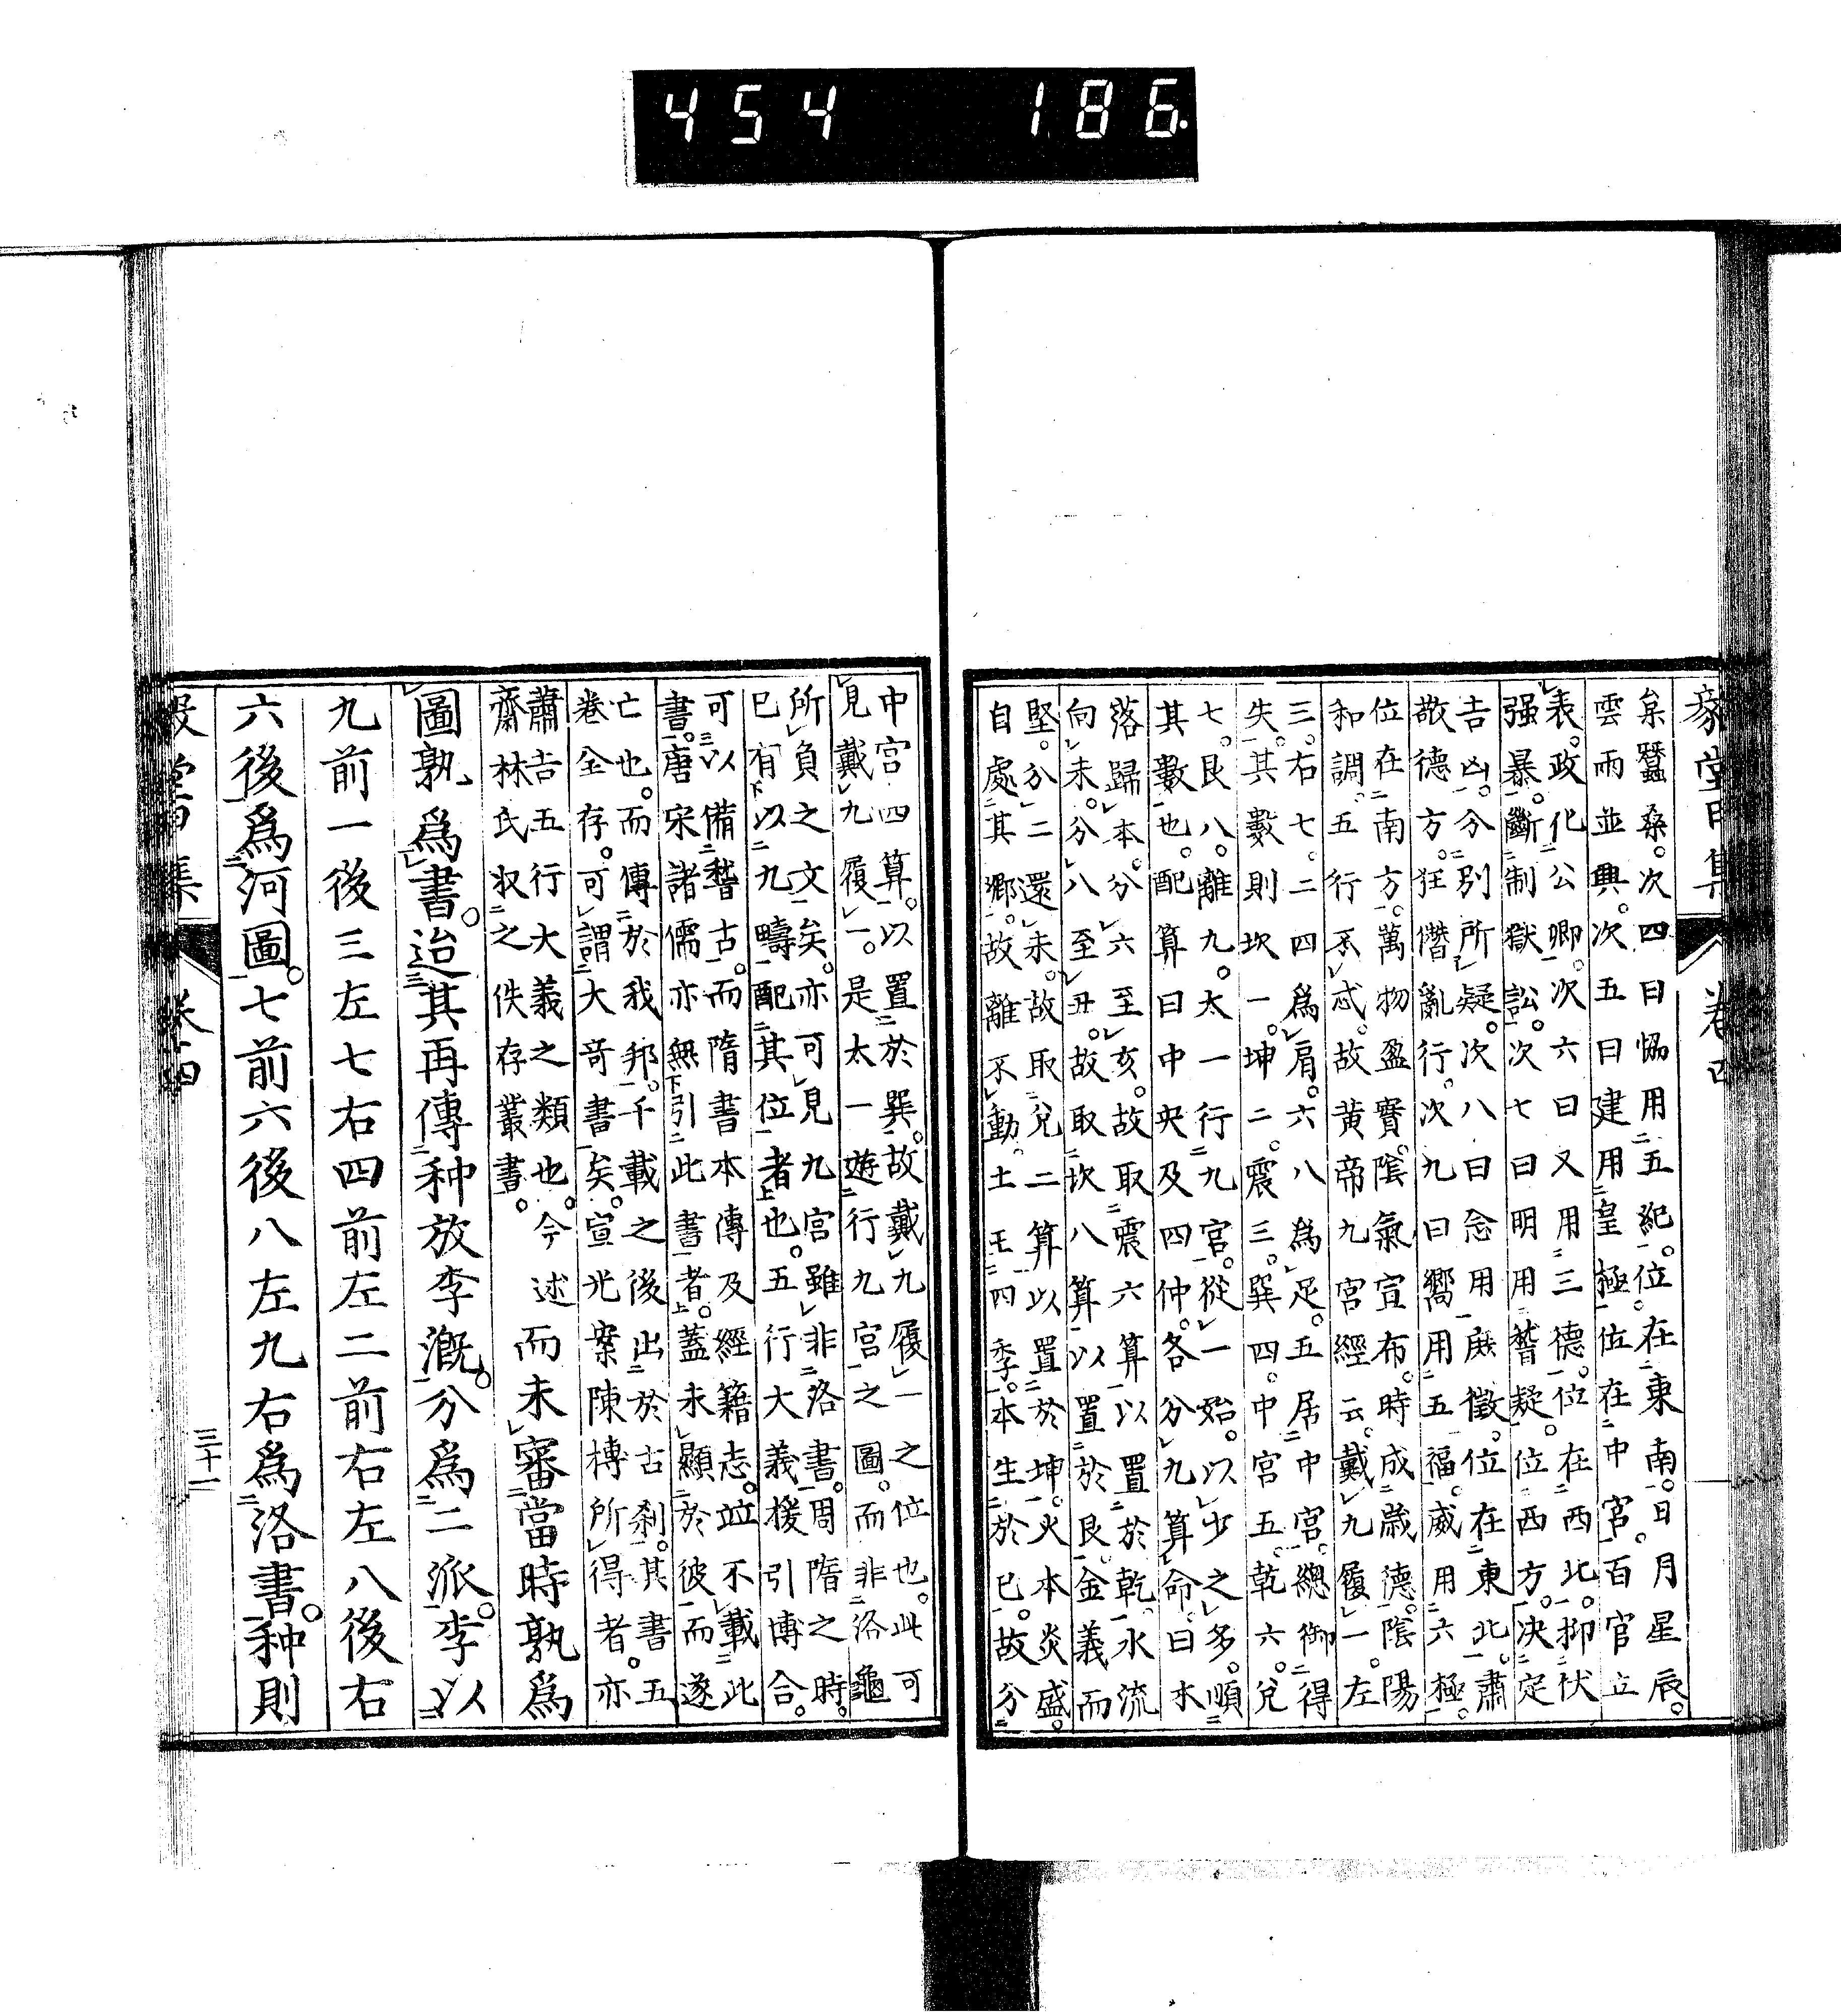 454 186
枲蠶桑。次四曰協用五紀。位在東南。日月星辰。
雲雨並興。次五曰建用皇極。位在中宮。百官立
表。政化公卿。次六曰乂用三德。位在西北。抑伏
强暴。斷制獄訟。次七曰明用稽疑。位西方。決定
吉凶。分別所疑。次八曰念用庶徵。位在東北。肅
敬德方。狂僭亂行。次九曰嚮用五福。威用六極。
位在南方。萬物盈實。陰氣宣布。時成歲德。陰陽
和調。五行不忒。故黃帝九宮經云。戴九履一。左
三。右七。二四爲肩。六八爲足。五居中宮。總御得
失。其數則坎一。坤二。震三。巽四。中宮五。乾六。兌
七。艮八。離九。太一行九宮。從一始。以少之多。順
其數也。配算曰中央及四仲。各分九算。命曰木
落歸本。分六至亥。故取震六算以置於乾。水流
向未。分八至丑。故取坎八算以置於艮。金義而
堅。分二還未。故取兌二算以置於坤。火本炎盛。
自處其鄉。故離不動。土王四季。本生於巳。故分
中宮四算。以置於巽。故戴九履一之位也。此可
見戴九履一。是太一遊行九宮之圖。而非洛龜
所負之文矣。亦可見九宮雖非洛書。周隋之時。
已有以九疇配其位者也。五行大義援引博合。
可以備稽古。而隋書本傳及經籍志。竝不載此
書。唐宋諸儒亦無引此書者。蓋未顯於彼而遂
亡也。而傳於我邦。千載之後出於古刹。其書五
卷全存。可謂大奇書矣。宣光案陳摶所得者。亦
蕭吉五行大義之類也。今述
齋林氏收之佚存叢書。
而未審當時孰爲
圖孰爲書。迨其再傳种放李溉。分爲二派。李以
九前一後三左七右四前左二前右左八後右
六後爲河圖。七前六後八左九右爲洛書。种則
卷四
三十一